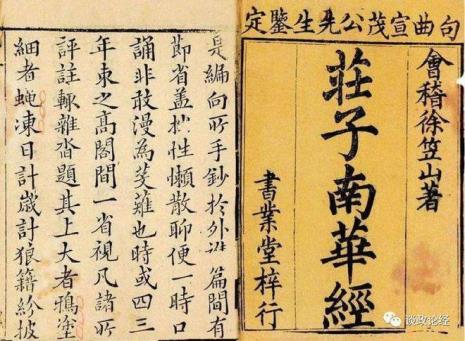 句曲宣茂公先生鑒定
會稽徐笠山著
莊子南華經
書業堂梓行
是編向所手鈔扵外篇間有
節省盖抄性懶散聊便一時口
誦非敢漫為芟薙也時或四三
年束之髙閣間一省視凡諸所
評註輒雜沓題其上大者鴉塗
細者蠅凍日計歲計狼籍紛披
谈政论经